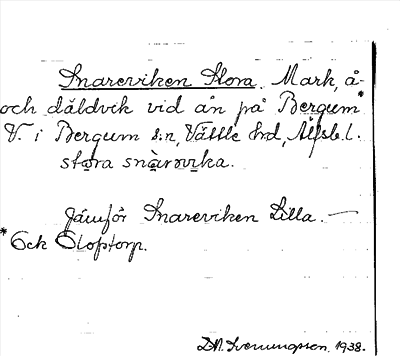 Snareviken Stora. Mark, å-
och däldvek vid ån på Bergum*
V. i Bergum s:n, Vättle hrd, Älfsb. l.
stora snàrovika.
Jämför Snareviken Lilla. —
* Och Oloptorp.
D.N. Svenungsen 1938.